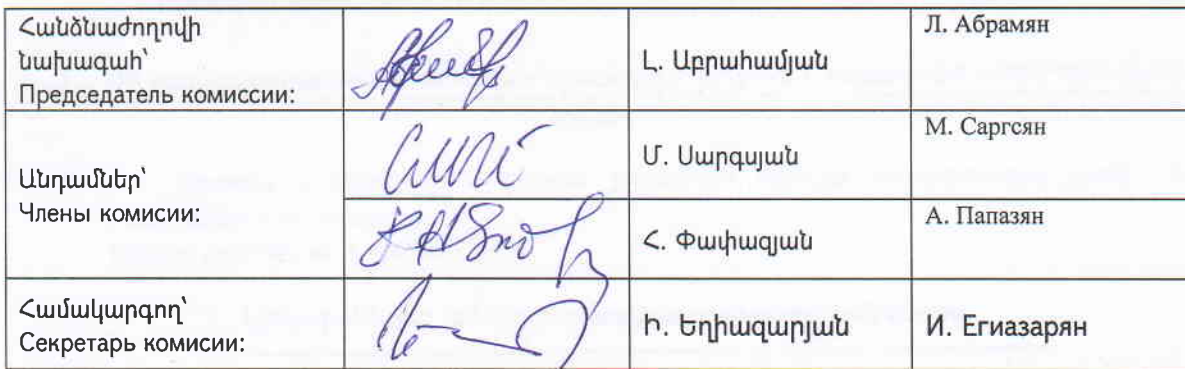 Հանձնաժողովի
նախագահ՝
Председатель комиссии:
Լ. Աբրահամյան
Л. Абрамян
Անդամներ՝
Члены комисии:
Մ. Սարգսյան
М. Саргсян
Հ. Փափազյան
А. Папазян
Համակարգող՝
Секретарь комисии:
Ի. Եղիազարյան
И. Егиазарян